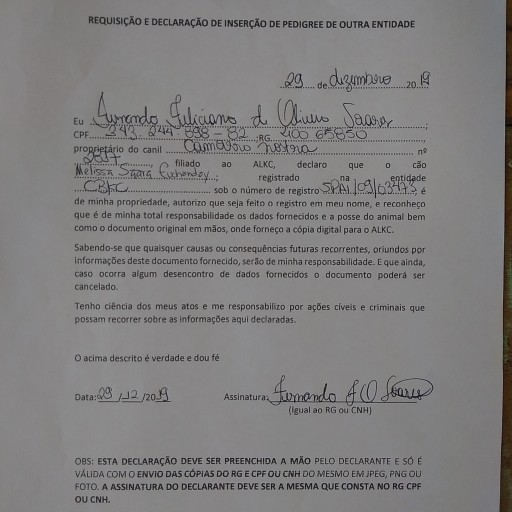 REQUISIÇÃO E DECLARAÇÃO DE INSERÇÃO DE PEDIGREE DE OUTRA ENTIDADE
29 de dizembro 2019
Eu Fernando Feliciano d Oliveira Soares;
CPF 343 898-82 RG
proprietário do canil nº
2607 filiado ao ALKC, declaro que o cão
Melissa registrado na entidade
CBKC sob o número de registro SPAI/09/03773, é
de minha propriedade, autorizo que seja feito o registro em meu nome, e reconheço
que é de minha total responsabilidade os dados fornecidos e a posse do animal bem
como o documento original em mãos, onde forneço a cópia digital para o ALKC.
Sabendo-se que quaisquer causas ou consequências futuras recorrentes, oriundos por
informações deste documento fornecido, serão de minha responsabilidade. E que ainda,
caso ocorra algum desencontro de dados fornecidos o documento poderá ser
cancelado.
Tenho ciência dos meus atos e me responsabilizo por ações cíveis e criminais que
possam recorrer sobre as informações aqui declaradas.
O acima descrito é verdade e dou fé
Data: 29/12/2019 Assinatura: Fernando F O Soares
(Igual ao RG ou CNH)
OBS: ESTA DECLARAÇÃO DEVE SER PREENCHIDA A MÃO PELO DECLARANTE E SÓ É
VÁLIDA COM O ENVIO DAS CÓPIAS DO RG E CPF OU CNH DO MESMO EM JPEG, PNG OU
FOTO. A ASSINATURA DO DECLARANTE DEVE SER A MESMA QUE CONSTA NO RG CPF
OU CNH.